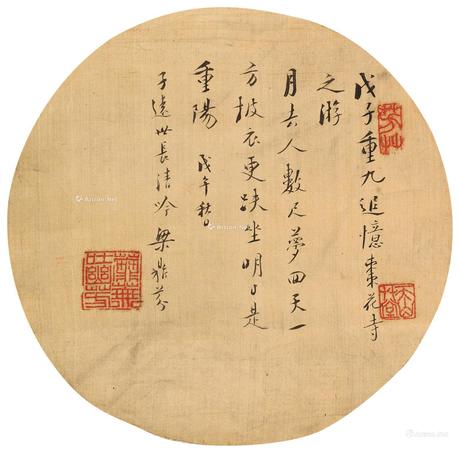 戊子重九追憶棗花寺
之游
月去人數尺夢回天一
方披衣更趺坐明日是
重陽 戊午秋日
子遠世長清吟 梁鼎芬